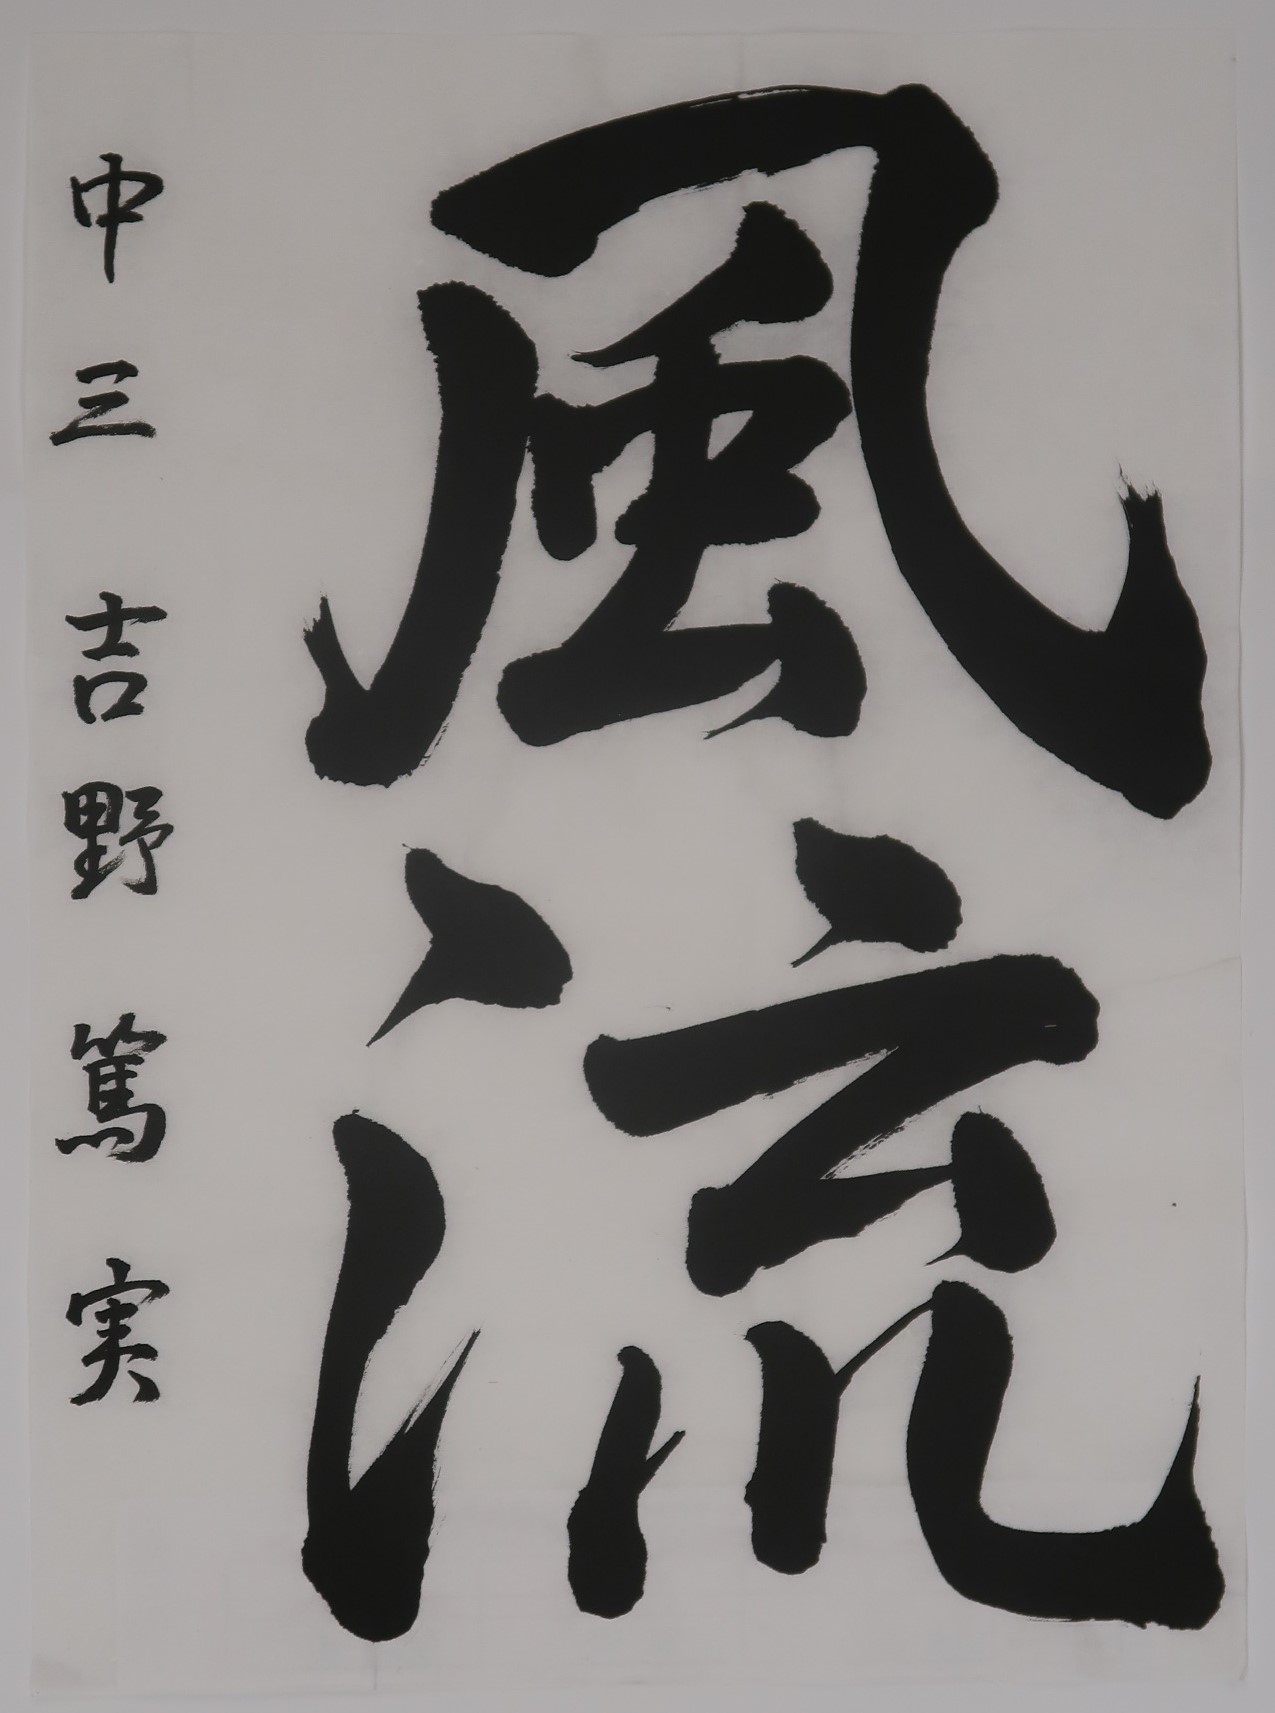 風流
中三 吉野 篤実